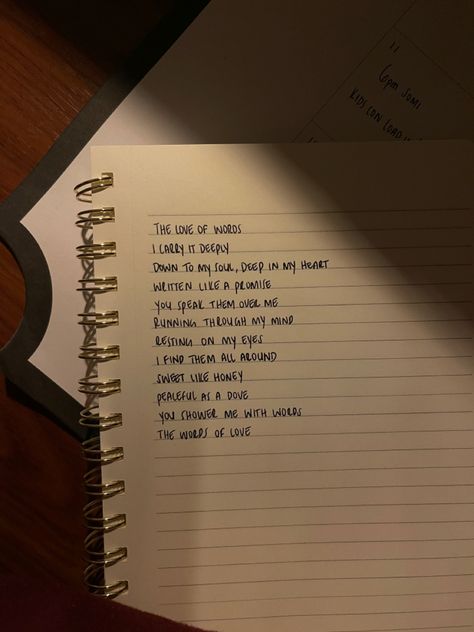 11
6pm SOMI
KIDS CON LOAD
THE LOVE OF WORDS
I CARRY IT DEEPLY
DOWN TO MY SOUL, DEEP IN MY HEART
WRITTEN LIKE A PROMISE
YOU SPEAK THEM OVER ME
RUNNING THROUGH MY MIND
RESTING ON MY EYES
I FIND THEM ALL AROUND
SWEET LIKE HONEY
PEACEFUL AS A DOVE
YOU SHOWER ME WITH WORDS
THE WORDS OF LOVE